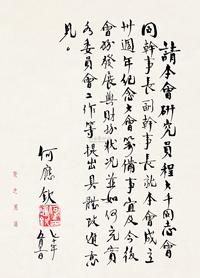 請本會研究員程大千同志會
同幹事長副幹事長就本會成立
卅週年紀念大會籌備事宜及今後
會務發展與財務狀況並如何充實
各委員會工作等提出具體改進意
見。
何應欽